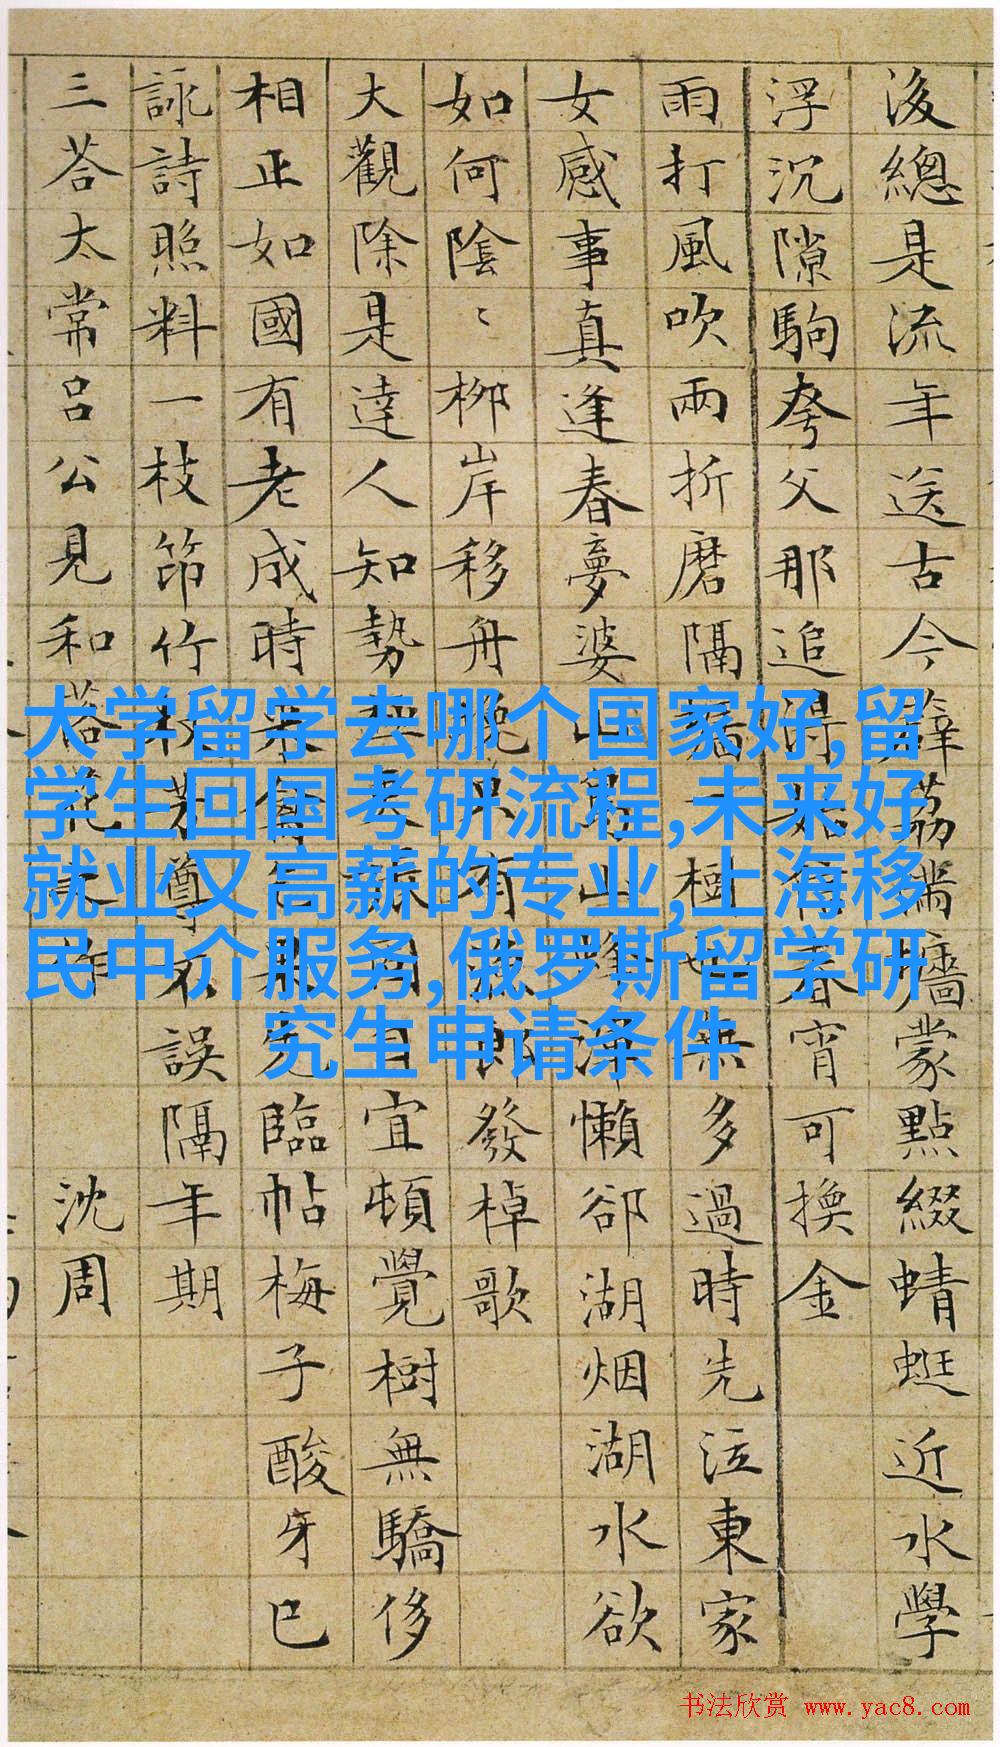 後總是流年送古今薜荔滿牆蒙點綴蜻蜓近水學
浮沉隙駒夸父那追得春宵可換金
雨打風吹兩折磨隔一樹無多過時先泣東家
女感事真逢春夢婆山山深懶卻湖烟湖水欲
如何陰〻柳岸移舟晚只有漁郎發棹歌
大觀除是達人知勢宜頓覺樹無驕侈
相正如國有老成時來先臨帖梅子酸牙已
詠詩照料一枝筇竹杖芳尊不誤隔年期
三答太常呂公見和落花之作 沈周
大学留学去哪个国家好,留
学生回国考研流程,未来好
就业又高薪的专业,上海移
民中介服务,俄罗斯留学研
究生申请条件
书法欣赏 www.yac8.com